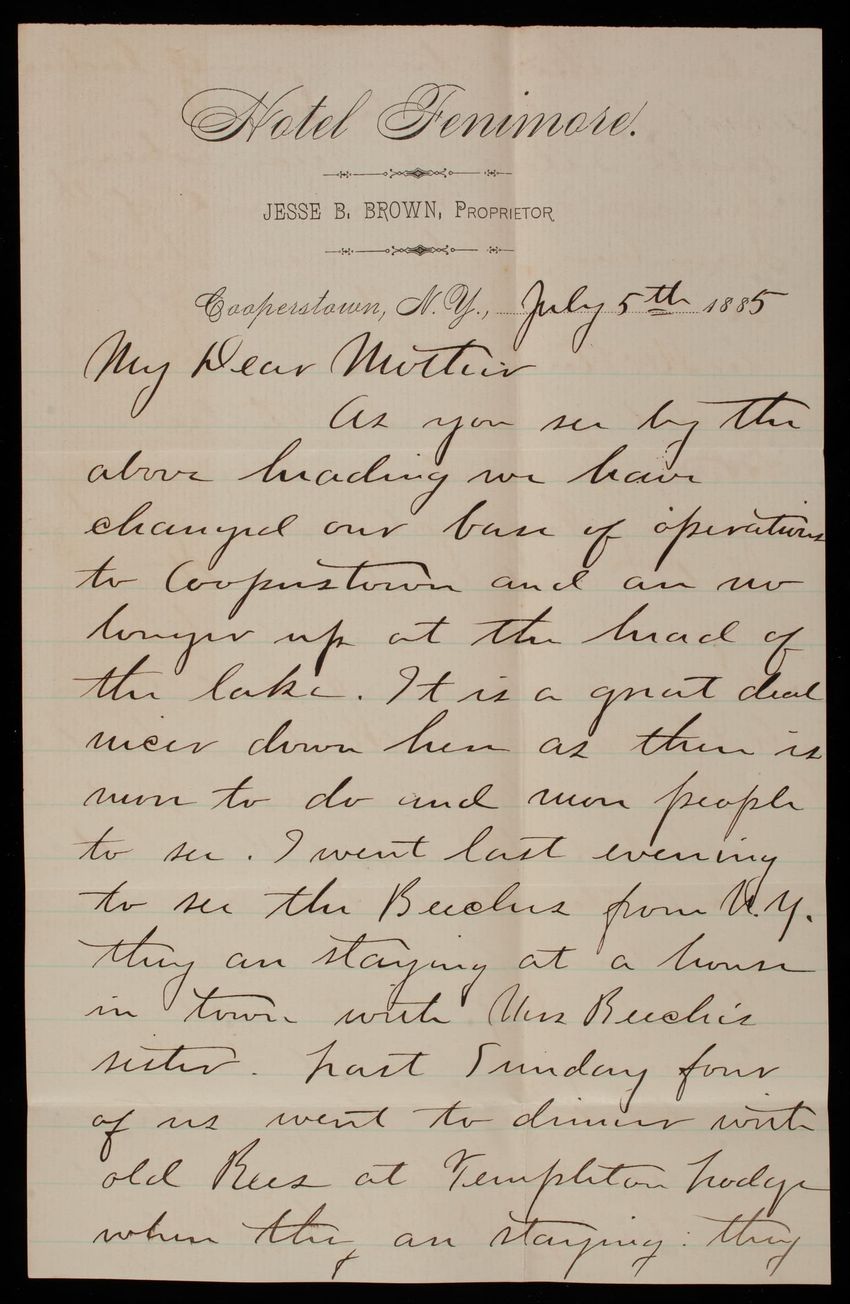 Hotel Fenimore.
JESSE B. BROWN, PROPRIETOR
Cooperstown, N.Y., July 5th 1885
My Dear Mother
As you see by the
above heading we have
changed our base of operations
to Cooperstown and are no
longer up at the head of
the lake. It is a great deal
nicer down here as there is
more to do and more people
to see. I went last evening
to see the Beechers from N.Y.
they are staying at a house
in town with Mrs Beecher's
sister. Last Sunday four
of us went to dinner with
old Rees at Templeton Lodge
where they are staying: they